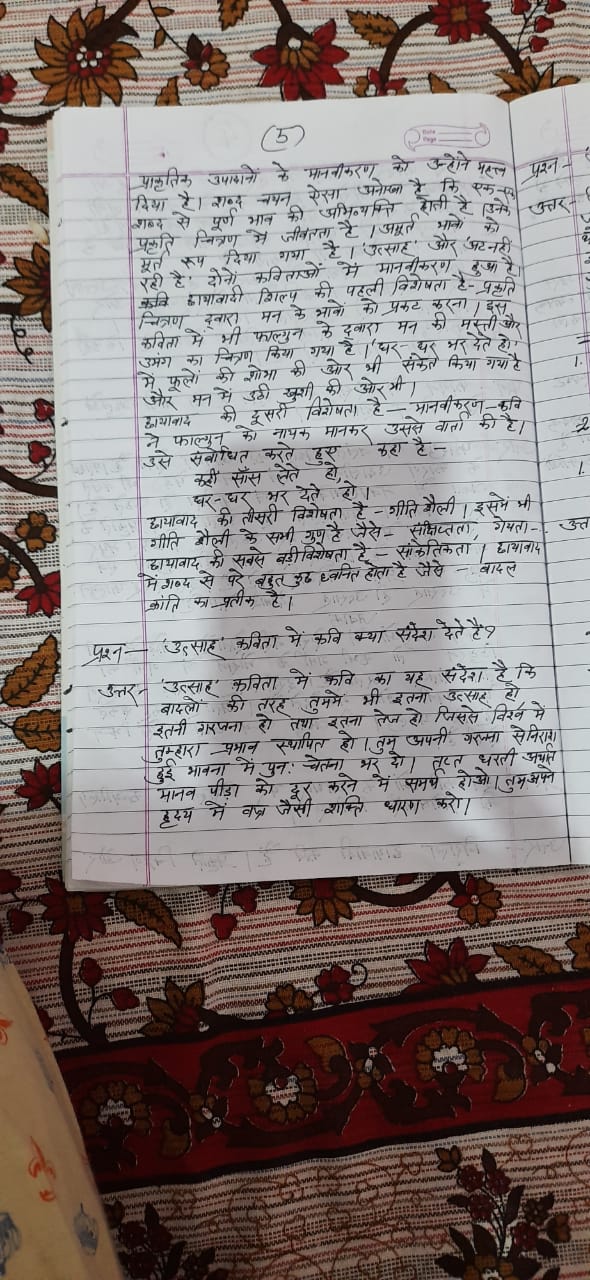 (5)
Date
Page
प्राकृतिक उपादानों के मानवीकरण को उन्होंने महत्त्व
दिया है। शब्द चयन ऐसा अनोखा है कि एक-एक
शब्द से पूर्ण भाव की अभिव्यक्ति होती है। उनके
प्रकृति चित्रण में जीवंतता है। अमूर्त भावों को
मूर्त रूप दिया गया है। 'उत्साह' और अट नहीं
रही है' दोनों कविताओं में मानवीकरण हुआ है।
कवि छायावादी शिल्प की पहली विशेषता है- प्रकृति
चित्रण द्वारा मन के भावों को प्रकट करना। इस
कविता में भी फाल्गुन के द्वारा मन की मस्ती और
उमंग का चित्रण किया गया है। 'घर-घर भर देते हो'
में फूलों की शोभा की ओर भी संकेत किया गया है
और मन में उठी खुशी की ओर भी।
छायावाद की दूसरी विशेषता है - मानवीकरण - कवि
ने फाल्गुन को नायक मानकर उससे वार्ता की है।
उसे संबोधित करते हुए कहा है -
कहीं साँस लेते हो,
घर-घर भर देते हो।
छायावाद की तीसरी विशेषता है - गीति शैली। इसमें भी
गीति शैली के सभी गुण है जैसे - संक्षिप्तता, गेयता -
छायावाद की सबसे बड़ी विशेषता है - सांकेतिकता। छायावाद
में शब्द से परे बहुत कुछ ध्वनित होता है जैसे - बादल
क्रांति का प्रतीक है।
प्रश्न - 'उत्साह' कविता में कवि क्या संदेश देते हैं?
उत्तर - 'उत्साह' कविता में कवि का यह संदेश है कि
बादलों की तरह तुममें भी इतना उत्साह हो
इतनी गरजना हो तथा इतना तेज हो जिससे विश्व में
तुम्हारा प्रभाव स्थापित हो। तुम अपनी गरजना से निराश
हुई भावना में पुनः चेतना भर दो। तप्त धरती अर्थात
मानव पीड़ा को दूर करने में समर्थ होओ। तुम अपने
हृदय में वज्र जैसी शक्ति धारण करो।
प्रश्न -
उत्तर -
1.
2
1.
उत्त